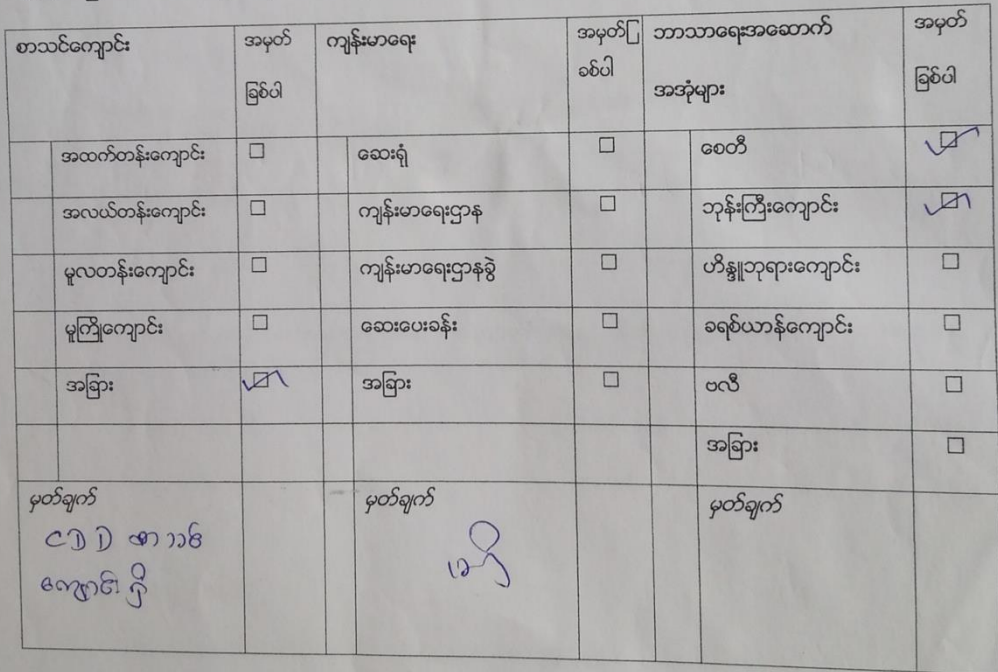 စာသင်ကျောင်း အမှတ်ခြစ်ပါ ကျန်းမာရေး အမှတ်ခြစ်ပါ ဘာသာရေးအဆောက်အအုံများ အမှတ်ခြစ်ပါ
အထက်တန်းကျောင်း ☐ ဆေးရုံ ☐ စေတီ ☑
အလယ်တန်းကျောင်း ☐ ကျန်းမာရေးဌာန ☐ ဘုန်းကြီးကျောင်း ☑
မူလတန်းကျောင်း ☐ ကျန်းမာရေးဌာနခွဲ ☐ ဟိန္ဒူဘုရားကျောင်း ☐
မူကြိုကျောင်း ☐ ဆေးပေးခန်း ☐ ခရစ်ယာန်ကျောင်း ☐
အခြား ☑ အခြား ☐ ဗလီ ☐
အခြား ☐
မှတ်ချက် မှတ်ချက် မှတ်ချက်
CDD စာသင်
ကျောင်း ရှိ